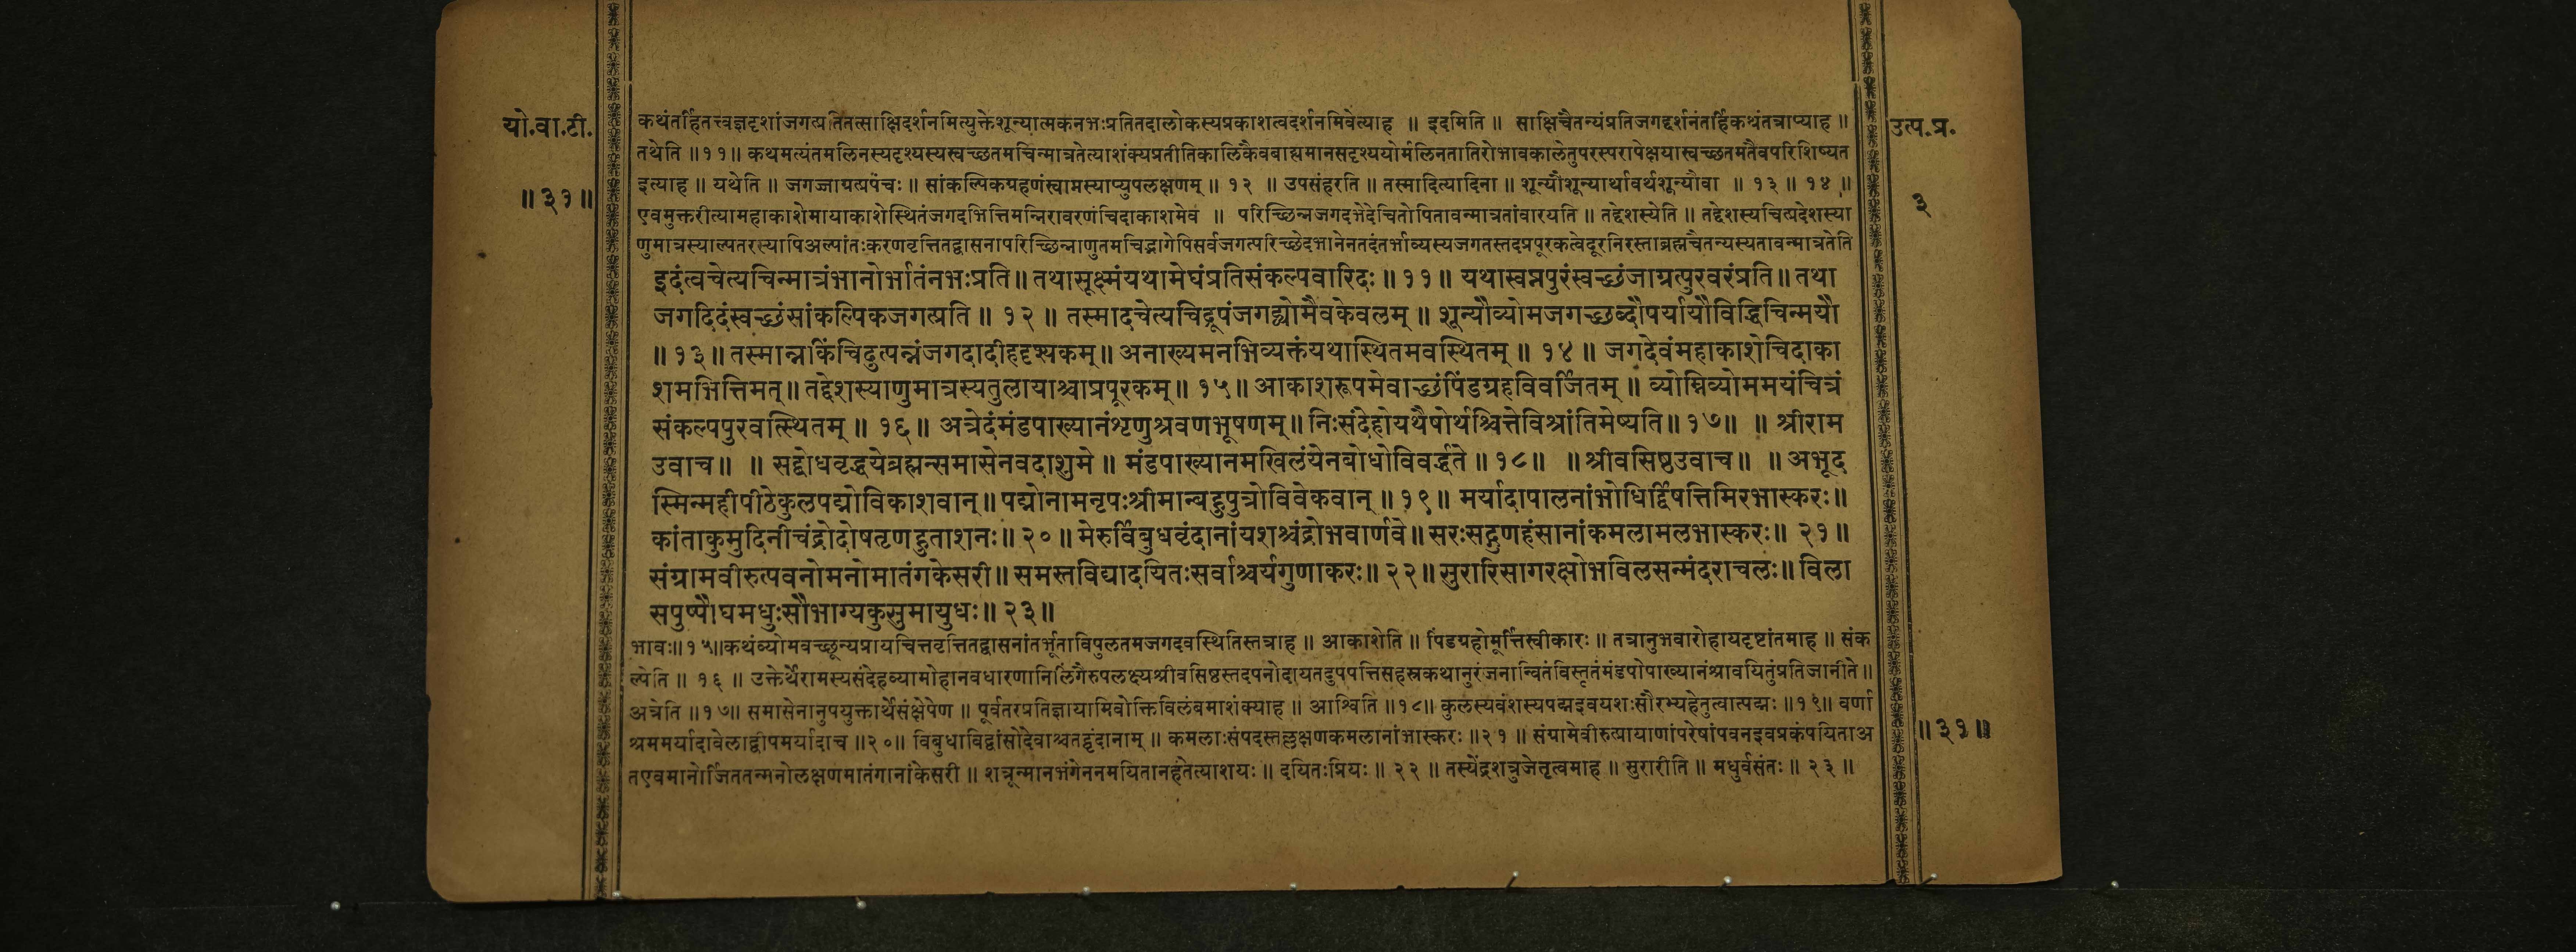 यो.वा.टी.
॥ ३१ ॥
कथंतर्हितत्त्वज्ञदृशांजगत्प्रतितत्साक्षिदर्शनमित्युक्तेशून्यात्मकनभःप्रतितदालोकस्यप्रकाशत्वदर्शनमिवेत्याह ॥ इदमिति ॥ साक्षिचैतन्यंप्रतिजगद्दर्शनंतर्हिकथंतत्राप्याह ॥
तथेति ॥ ११ ॥ कथमत्यंतमलिनस्यदृश्यस्यस्वच्छतमचिन्मात्रतेत्याशंक्यप्रतीतिकालिकैवबाह्यमानसदृश्ययोर्मलिनतातिरोभावकालेतुपरस्परापेक्षयास्वच्छतमतैवपरिशिष्यत
इत्याह ॥ यथेति ॥ जगज्जाग्रत्प्रपंचः ॥ सांकल्पिकग्रहणंस्वाप्नस्याप्युपलक्षणम् ॥ १२ ॥ उपसंहरति ॥ तस्मादित्यादिना ॥ शून्यौशून्यार्थावर्थशून्यौवा ॥ १३ ॥ १४ ॥
एवमुक्तरीत्यामहाकाशेमायाकाशेस्थितंजगदभित्तिमन्निरावरणंचिदाकाशमेव ॥ परिच्छिन्नजगदभेदेचितोपितावन्मात्रतांवारयति ॥ तद्देशस्येति ॥ तद्देशस्यचित्प्रदेशस्या
णुमात्रस्याल्पतरस्यापिअल्पांतःकरणवृत्तितद्वासनापरिच्छिन्नाणुतमचिद्भागेपिसर्वजगत्परिच्छेदभानेनतदंतर्भाव्यस्यजगतस्तदप्रपूरकत्वेदूरनिरस्ताब्रह्मचैतन्यस्यतावन्मात्रतेति
इदंत्वचेत्यचिन्मात्रंभानोर्भातंनभःप्रति ॥ तथासूक्ष्मंयथामेघंप्रतिसंकल्पवारिदः ॥ ११ ॥ यथास्वप्नपुरंस्वच्छंजाग्रत्पुरवरंप्रति ॥ तथा
जगदिदंस्वच्छंसांकल्पिकजगत्प्रति ॥ १२ ॥ तस्मादचेत्यचिद्रूपंजगद्व्योमैवकेवलम् ॥ शून्यौव्योमजगच्छब्दौपर्यायौविद्धिचिन्मयौ
॥ १३ ॥ तस्मान्नकिंचिदुत्पन्नंजगदादीहदृश्यकम् ॥ अनाख्यमनभिव्यक्तंयथास्थितमवस्थितम् ॥ १४ ॥ जगदेवंमहाकाशेचिदाका
शमभित्तिमत् ॥ तद्देशस्याणुमात्रस्यतुलायाश्चाप्रपूरकम् ॥ १५ ॥ आकाशरूपमेवाच्छंपिंडग्रहविवर्जितम् ॥ व्योम्निव्योममयंचित्रं
संकल्पपुरवत्स्थितम् ॥ १६ ॥ अत्रेदंमंडपाख्यानंशृणुश्रवणभूषणम् ॥ निःसंदेहोयथैषोर्थश्चित्तेविश्रांतिमेष्यति ॥ १७ ॥ ॥ श्रीराम
उवाच ॥ ॥ सद्बोधवृद्धयेब्रह्मन्समासेनवदाशुमे ॥ मंडपाख्यानमखिलंयेनबोधोविवर्द्धते ॥ १८ ॥ ॥ श्रीवसिष्ठउवाच ॥ ॥ अभूद
स्मिन्महीपीठेकुलपद्मोविकाशवान् ॥ पद्मोनामनृपःश्रीमान्बहुपुत्रोविवेकवान् ॥ १९ ॥ मर्यादापालनांभोधिर्द्विषत्तिमिरभास्करः ॥
कांताकुमुदिनीचंद्रोदोषतृणहुताशनः ॥ २० ॥ मेरुर्विबुधवृंदानांयशश्चंद्रोभवार्णवे ॥ सरःसद्गुणहंसानांकमलामलभास्करः ॥ २१ ॥
संग्रामवीरुत्पवनोमनोमातंगकेसरी ॥ समस्तविद्यादयितःसर्वाश्चर्यगुणाकरः ॥ २२ ॥ सुरारिसागरक्षोभविलसन्मंदराचलः ॥ विला
सपुष्पौघमधुःसौभाग्यकुसुमायुधः ॥ २३ ॥
भावः ॥ १५ ॥ कथंव्योमवच्छून्यप्रायचित्तवृत्तितद्वासनांतर्भूताविपुलतमजगदवस्थितिस्तत्राह ॥ आकाशेति ॥ पिंडग्रहोमूर्त्तिस्वीकारः ॥ तत्रानुभवारोहायदृष्टांतमाह ॥ संक
ल्पेति ॥ १६ ॥ उक्तेर्थेरामस्यसंदेहव्यामोहानवधारणानिलिंगैरुपलक्ष्यश्रीवसिष्ठस्तदपनोदायतदुपपत्तिसहस्रकथानुरंजनान्वितंविस्तृतंमंडपोपाख्यानंश्रावयितुंप्रतिजानीते ॥
अत्रेति ॥ १७ ॥ समासेनानुपयुक्तार्थेसंक्षेपेण ॥ पूर्वतरप्रतिज्ञायामिवोक्तिविलंबमाशंक्याह ॥ आश्विति ॥ १८ ॥ कुलस्यवंशस्यपद्मइवयशःसौरभ्यहेतुत्वात्पद्मः ॥ १९ ॥ वर्णा
श्रममर्यादावेलाद्वीपमर्यादाच ॥ २० ॥ विबुधाविद्वांसोदेवाश्चतद्वृंदानाम् ॥ कमलाःसंपदस्तल्लक्षणकमलानांभास्करः ॥ २१ ॥ संग्रामेवीरुत्प्रायाणांपरेषांपवनइवप्रकंपयिताअ
तएवमानोर्जिततन्मनोलक्षणमातंगानांकेसरी ॥ शत्रून्मानभंगेननमयितानहंतेत्याशयः ॥ दयितःप्रियः ॥ २२ ॥ तस्येंद्रशत्रुजेतृत्वमाह ॥ सुरारीति ॥ मधुर्वसंतः ॥ २३ ॥
उत्प.प्र.
३
॥ ३१ ॥